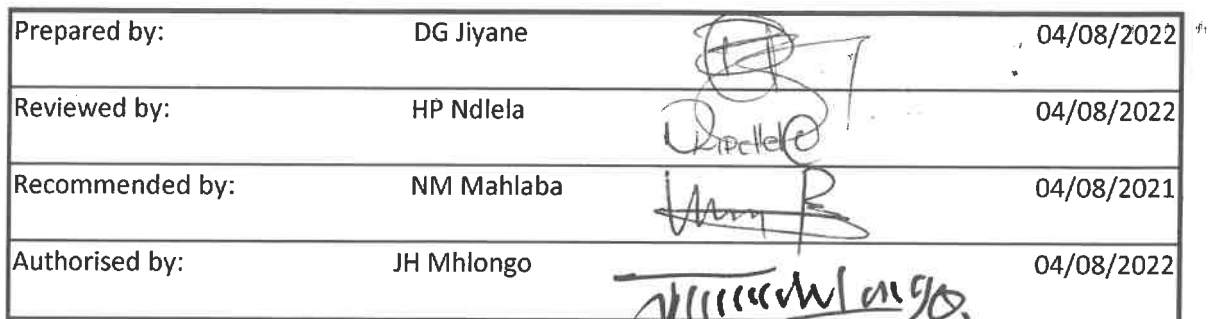 Prepared by: DG Jiyane 04/08/2022
Reviewed by: HP Ndlela 04/08/2022
Recommended by: NM Mahlaba 04/08/2021
Authorised by: JH Mhlongo 04/08/2022